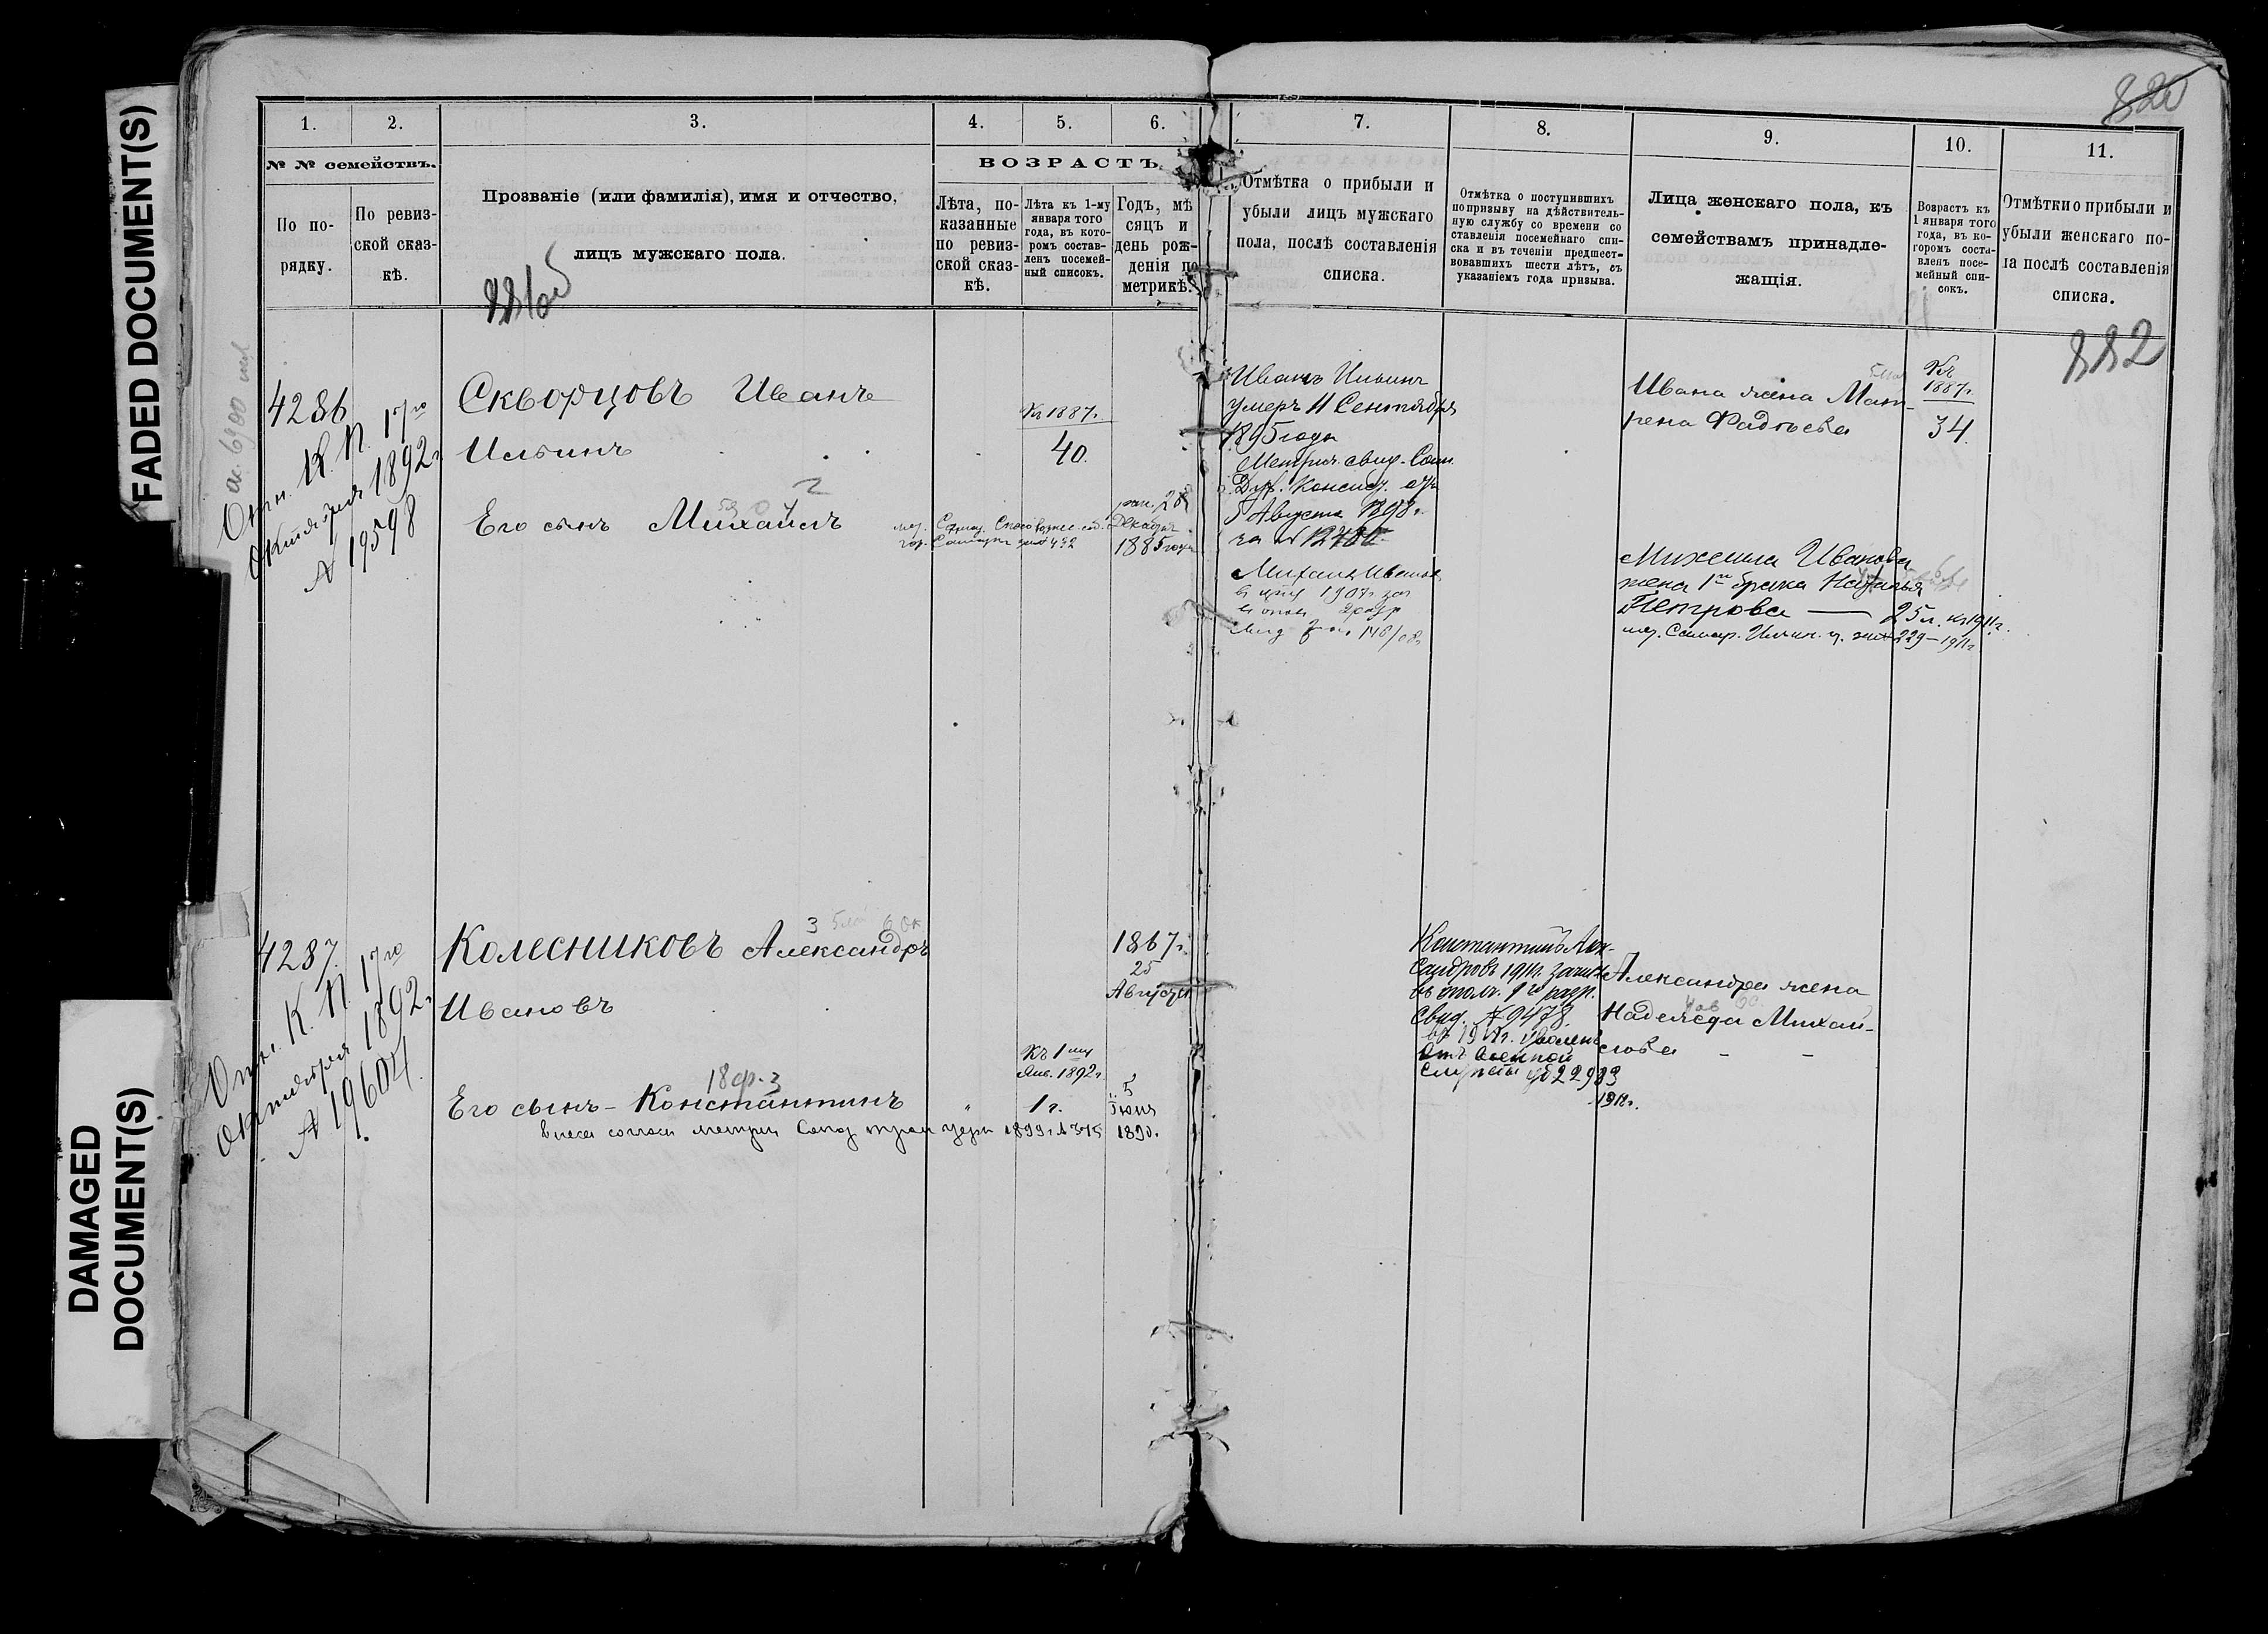 FADED DOCUMENT(S)
DAMAGED
DOCUMENT(S)
820
1.
2.
3.
4.
5.
6.
7.
8.
9.
10.
11.
№ № семействъ.
По по-
рядку.
По ревиз-
ской сказ-
кѣ.
Прозваніе (или фамилія), имя и отчество,
лицъ мужскаго пола.
ВОЗРАСТЪ
Лѣта, по-
казанные
по ревиз-
ской сказ-
кѣ.
Лѣта къ 1-му
января того
года, въ кото-
ромъ состав-
ленъ посемей-
ный списокъ.
Годъ, мѣ
сяцъ и
день рож-
денія по
метрикѣ.
Отмѣтка о прибыли и
убыли лицъ мужскаго
пола, послѣ составленія
списка.
Отмѣтка о поступившихъ
по призыву на дѣйствитель-
ную службу со времени со
ставленія посемейнаго спи-
ска и въ теченіи предшест-
вовавшихъ шести лѣтъ, съ
указаніемъ года призыва.
Лица женскаго пола, къ
семействамъ принадле-
жащія.
Возрастъ къ
1 января того
года, въ ко-
торомъ соста-
вленъ посе-
мейный спи-
сокъ.
Отмѣтки о прибыли и
убыли женскаго по-
ла послѣ составленія
списка.
882
4286
Отн. К. П. 17го
Октября 1892г.
№ 19598
Скворцовъ Иванъ
Ильинъ
Къ 1887г.
40.
Его сынъ Михаилъ
28
Декабря
1885 года
Иванъ Ильинъ
умеръ 11 Сентября
1895 года
Метрич. свид. Сам.
Дух. Консист. отъ
5 Августа 1898г.
за №
Михаилъ Ивановъ
Ивана жена Мат-
рена Фадѣева
Къ
1887г.
34.
Михаила Иванова
жена 1го брака Наталья
Петрова — 25 л. къ 1911г.
229 — 1911г.
4287.
Отн. К. П. 17го
Октября 1892г.
№ 19604.
Колесниковъ Александръ
Ивановъ
1867г.
25
Августа
Къ 1му
Янв. 1892г.
18 ф. 3
Его сынъ - Константинъ
1 г.
5
Іюня
1890г.
Константинъ Алек-
сандровъ 1911г. зачисл.
въ ополч. 1го разр.
Свид. № 9478.
уволенъ
отъ военной
службы
1918г.
Александра жена
Надежда Михай-
лова